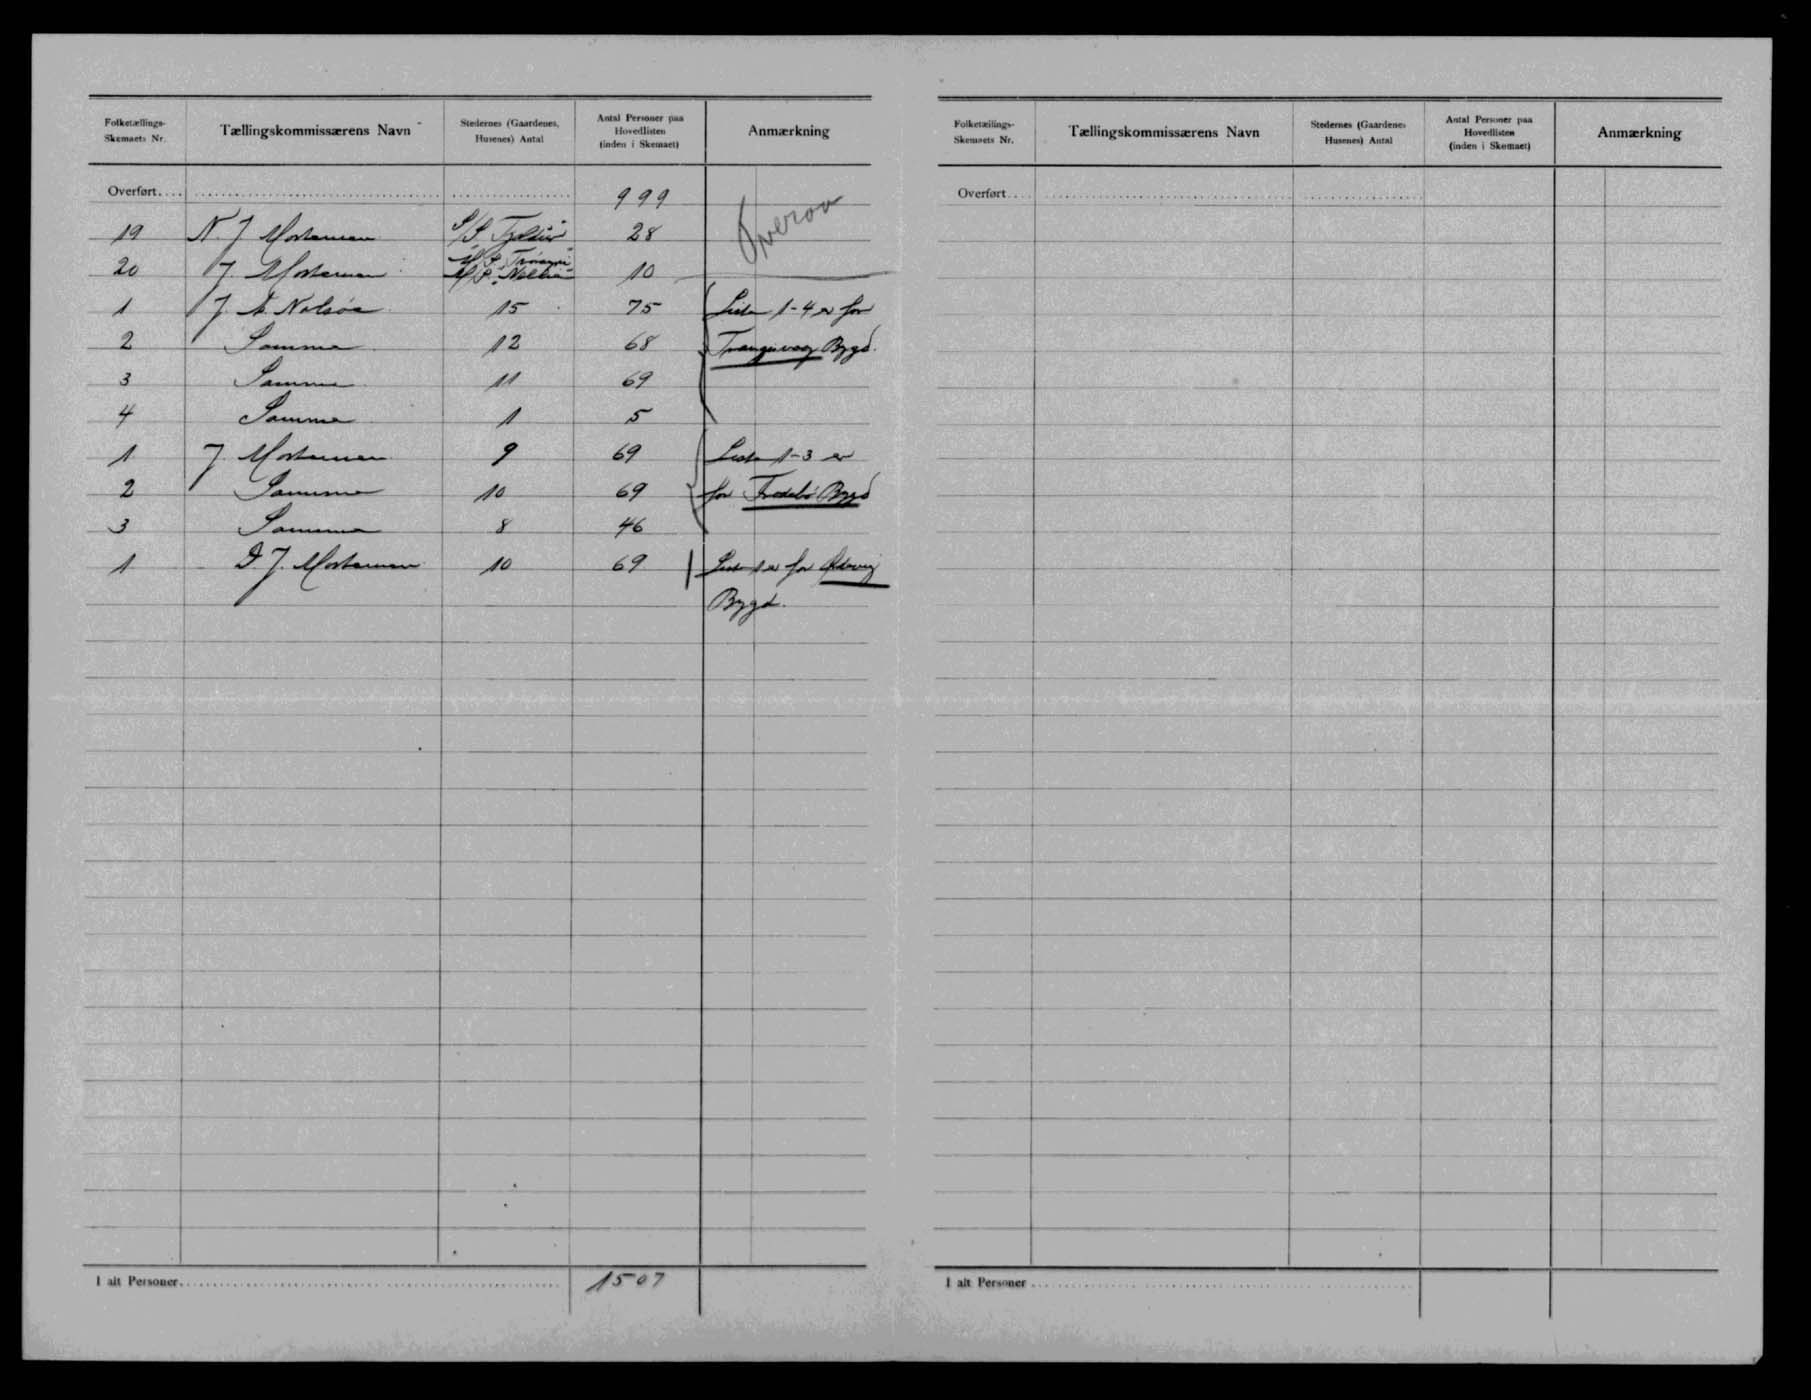 Folketællings-Skemaets Nr. Tællingskommissærens Navn Stedernes (Gaardenes, Husenes) Antal Antal Personer paa Hovedlisten (inden i Skemaet) Anmærkning
Overført 999
19 N. J. Mortensen S/S 28
20 J. Mortensen 10
1 J. A. Nolsøe 15 75 Liste 1-4 er for
2 Samme 12 68 Trangisvaag Bygd.
3 Samme 11 69
4 Samme 1 5
1 J. Mortensen 9 69 Liste 1-3 er
2 Samme 10 69 for Frodebø Bygd
3 Samme 8 46
1 D. J. Mortensen 10 69 Liste 1 er for Ørdevig
Bygd.
I alt Personer 1507
Folketællings-Skemaets Nr. Tællingskommissærens Navn Stedernes (Gaardenes Husenes) Antal Antal Personer paa Hovedlisten (inden i Skemaet) Anmærkning
Overført
I alt Personer